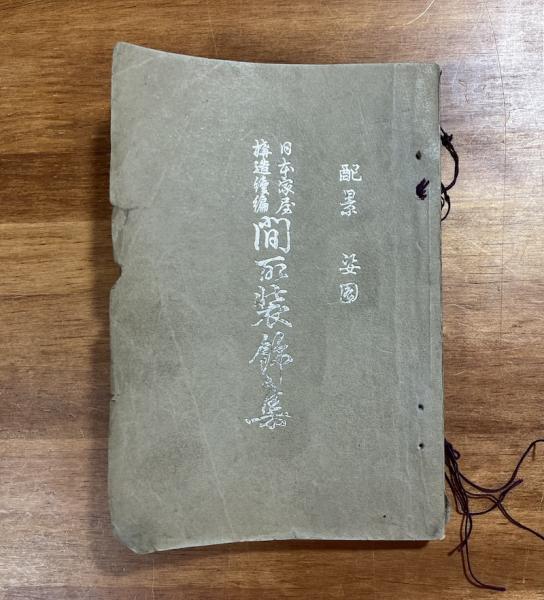 配景 姿図
日本家屋
構造續編
間取装飾之集